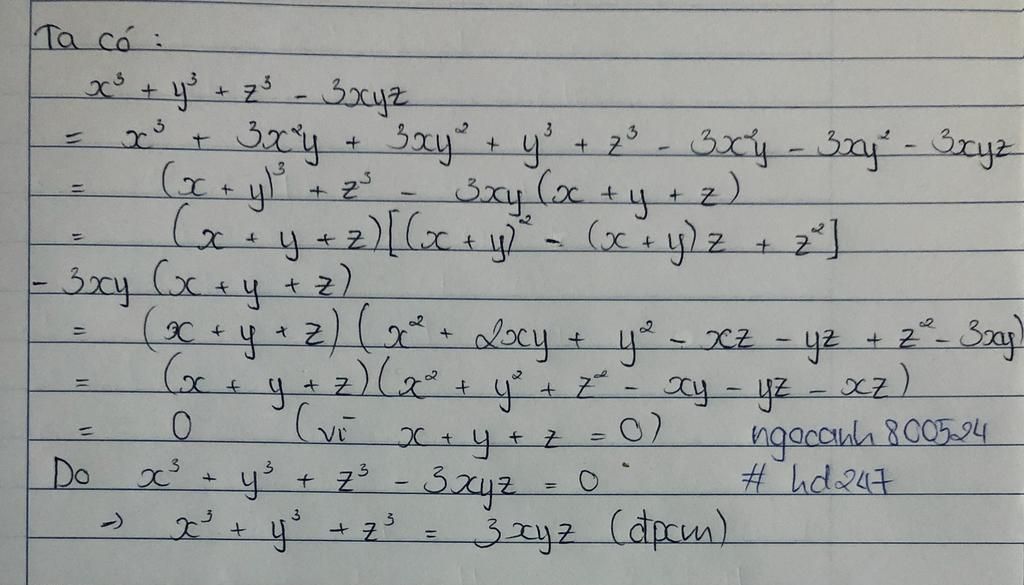 Ta có :
x³ + y³ + z³ - 3xyz
= x³ + 3x²y + 3xy² + y³ + z³ - 3x²y - 3xy² - 3xyz
= (x + y)³ + z³ - 3xy (x + y + z)
= (x + y + z)[(x + y)² - (x + y) z + z²]
- 3xy (x + y + z)
= (x + y + z) (x² + 2xy + y² - xz - yz + z² - 3xy)
= (x + y + z)(x² + y² + z² - xy - yz - xz)
= 0 (vì x + y + z = 0) ngocanh 800524
Do x³ + y³ + z³ - 3xyz = 0 # hd247
→ x³ + y³ + z³ = 3xyz (đpcm)